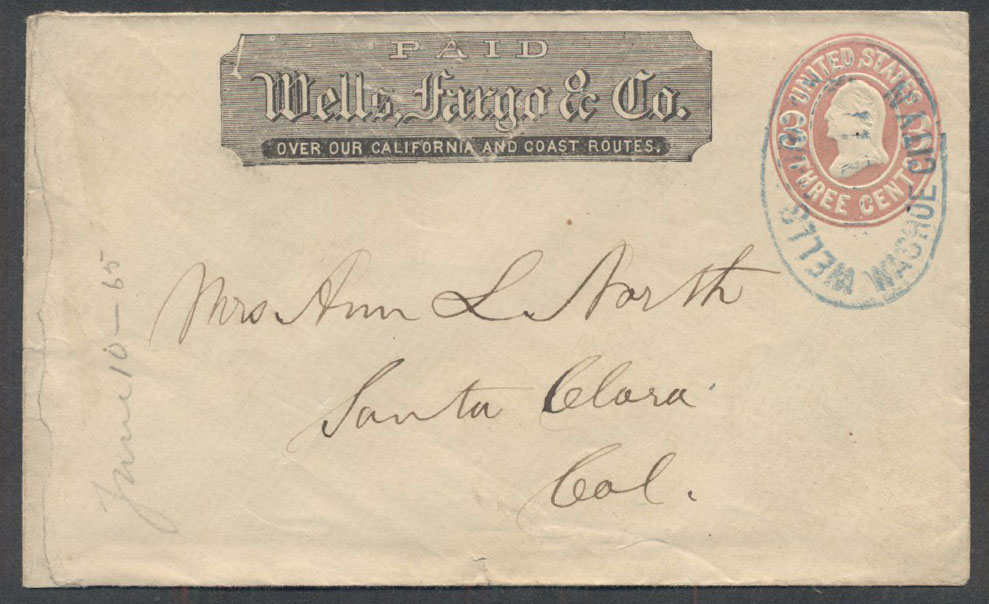 PAID
Wells, Fargo & Co.
OVER OUR CALIFORNIA AND COAST ROUTES.
UNITED STATES
THREE CENTS
WELLS
WASHOE CITY N
Mrs. Ann L. North
Santa Clara
Cal.
June 10 - 65